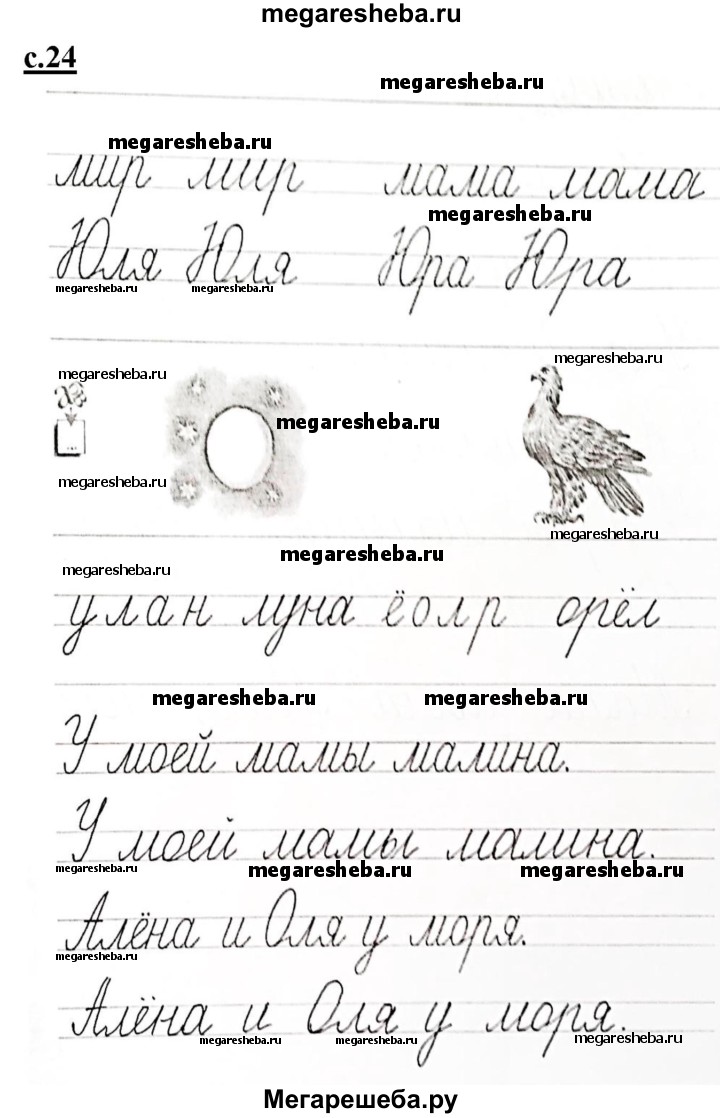 megaresheba.ru
с.24
megaresheba.ru
megaresheba.ru
мир мир мама мама
megaresheba.ru
Юля Юля Юра Юра
megaresheba.ru megaresheba.ru
megaresheba.ru
megaresheba.ru
megaresheba.ru
megaresheba.ru
megaresheba.ru
megaresheba.ru
megaresheba.ru
улан луна ёолр орёл
megaresheba.ru megaresheba.ru
У моей мамы малина.
У моей мамы малина.
megaresheba.ru megaresheba.ru megaresheba.ru
Алёна и Оля у моря.
megaresheba.ru
Алёна и Оля у моря.
megaresheba.ru megaresheba.ru megaresheba.ru
Мегарешеба.ру